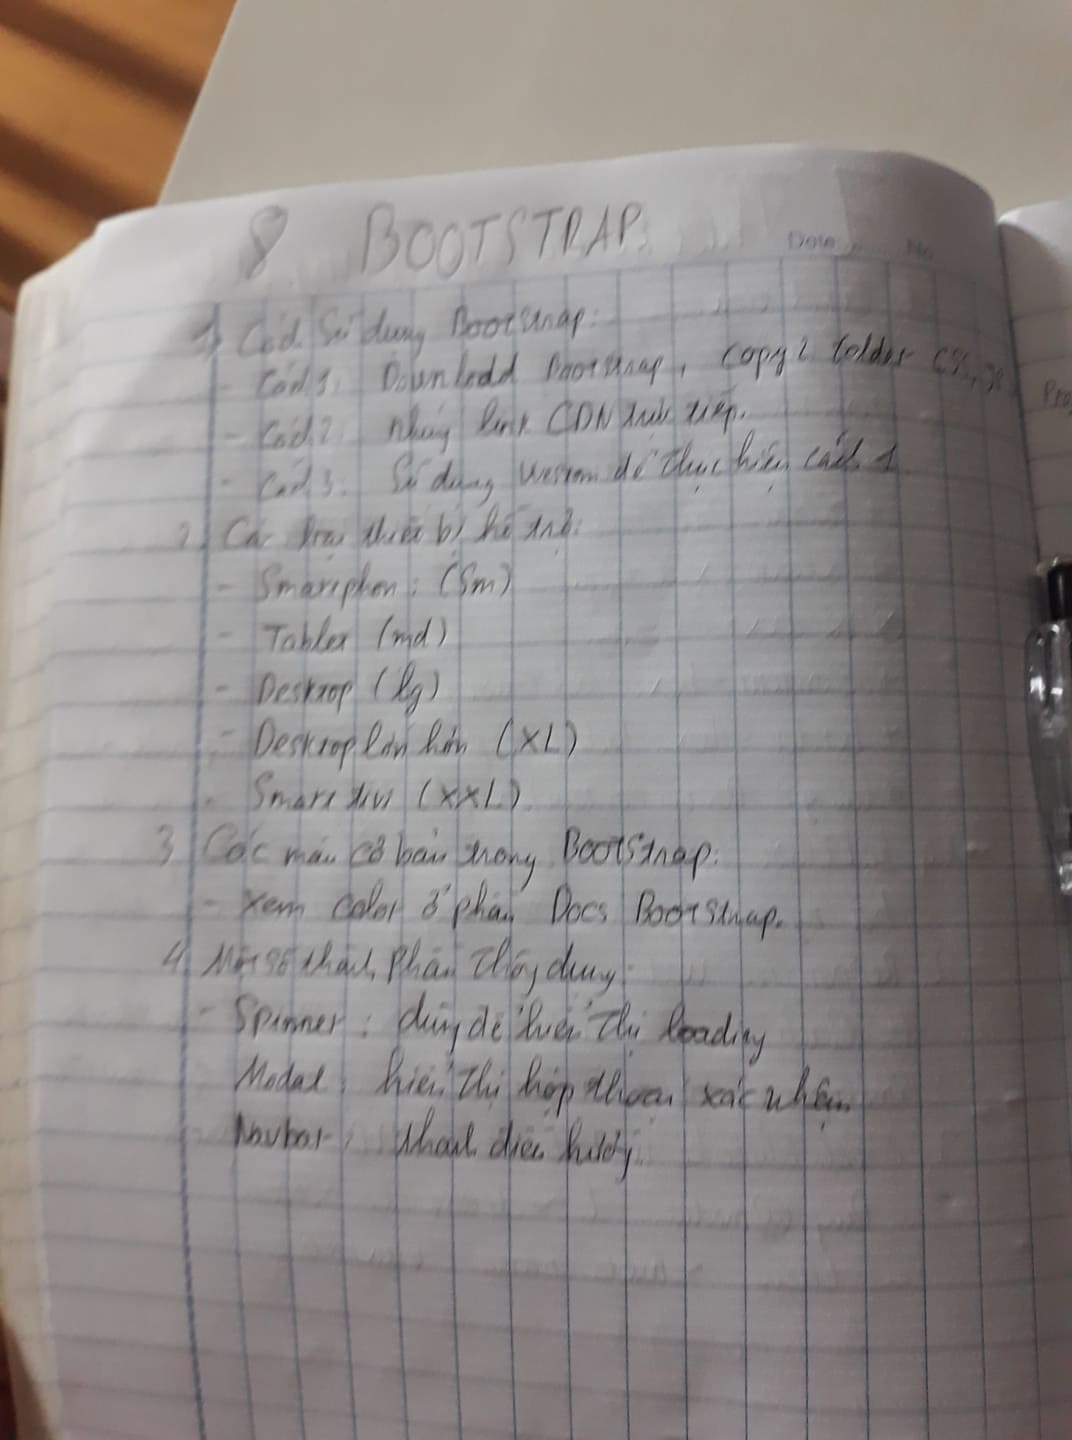 8 BOOTSTRAP
Date No
1, Cách sử dụng Bootstrap:
- Cách 1: Download Bootstrap, copy 2 folder CSS, JS
- Cách 2: Nhúng link CDN trực tiếp.
- Cách 3: Sử dụng để thực hiện cách 1
2, Các loại thiết bị hỗ trợ:
- Smartphon: (Sm)
- Tablet (md)
- Desktop (lg)
- Desktop lớn hơn (XL)
- Smart tivi (XXL)
3 Các màu cơ bản trong Bootstrap:
- Xem color ở phần Docs Bootstrap.
4, Một số thành phần thông dụng:
- Spinner: dùng để hiển thị loading
Modal: hiển thị hộp thoại xác nhận
- Navbar: thanh điều hướng